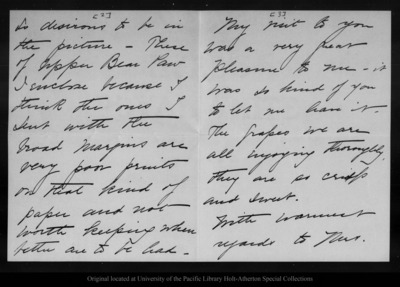 [2]
so desirous to be in
the picture - These
of Upper Bear Paw
I enclose because I
think the ones I
sent with the
broad margins are
very poor prints
on that kind of
paper and not
worth keeping when
better are to be had -
[3]
My visit to you
was a very great
pleasure to me - it
was so kind of you
to let me have it.
The grapes we are
all enjoying thoroughly,
they are so crisp
and sweet.
With warmest
regards to Mrs.
Original located at University of the Pacific Library Holt-Atherton Special Collections